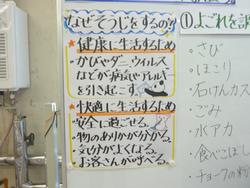 なぜそうじをするの?
★健康に生活するため
かびやダニ、ウイルス
などが病気やアレルギー
を引き起こす。
★快適に生活するため
・安全に過ごせる。
・物のありかが分かる。
・気分がよくなる。
・お客さんが呼べる。
①よごれを
・さび
・ほこり
・石けんカス
・ごみ
・水アカ
・食べこぼし
・チョークの